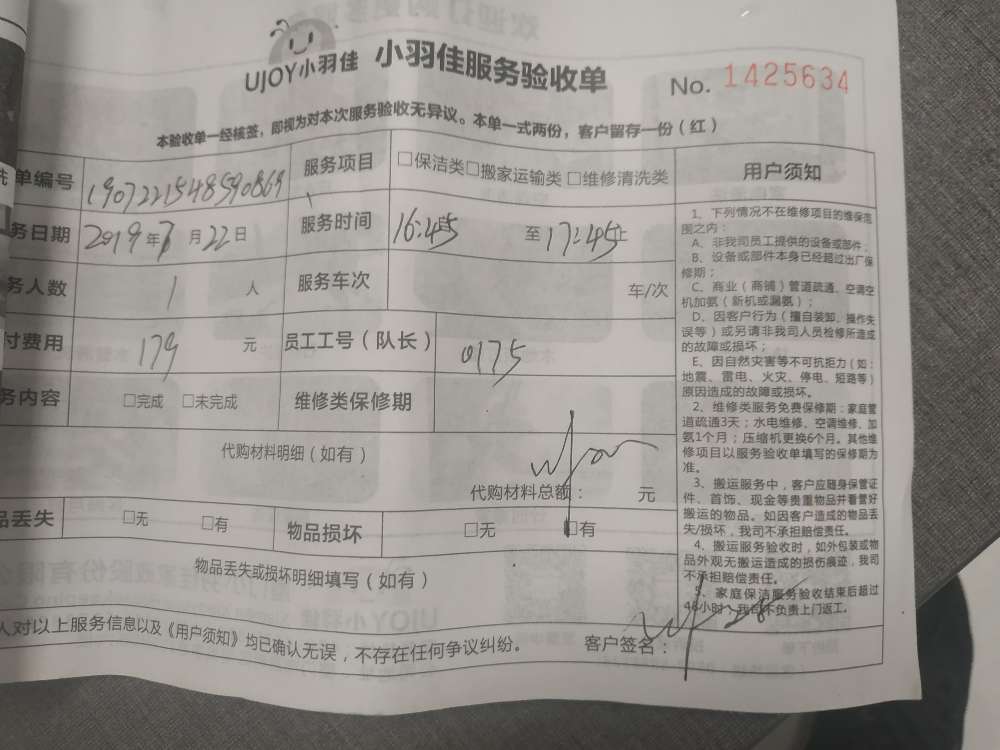 UJOY小羽佳 小羽佳服务验收单 No. 1425634
本验收单一经核签，即视为对本次服务验收无异议。本单一式两份，客户留存一份（红）
单编号 1907221548590869 服务项目 □保洁类□搬家运输类 □维修清洗类
务日期 2019年7月22日 服务时间 16:45 至 17:45止
务人数 1 人 服务车次 车/次
付费用 179 元 员工工号（队长） 0175
务内容 □完成 □未完成 维修类保修期
代购材料明细（如有）
代购材料总额： 元
品丢失 □无 □有 物品损坏 □无 □有
物品丢失或损坏明细填写（如有）
人对以上服务信息以及《用户须知》均已确认无误，不存在任何争议纠纷。 客户签名：
用户须知
1、下列情况不在维修项目的维保范
围之内：
A、非我司员工提供的设备或部件；
B、设备或部件本身已经超过出厂保
修期；
C、商业（商铺）管道疏通、空调空
机加氨（新机或漏氨）；
D、因客户行为（擅自装卸、操作失
误等）或另请非我司人员检修所造成
的故障或损坏；
E、因自然灾害等不可抗拒力（如：
地震、雷电、火灾、停电、短路等）
原因造成的故障或损坏。
2、维修类服务免费保修期：家庭管
道疏通3天；水电维修、空调维修、加
氨1个月；压缩机更换6个月。其他维
修项目以服务验收单填写的保修期为
准。
3、搬运服务中，客户应随身保管证
件、首饰、现金等贵重物品并看管好
搬运的物品。如因客户造成的物品丢
失/损坏，我司不承担赔偿责任。
4、搬运服务验收时，如外包装或物
品外观无搬运造成的损伤痕迹，我司
不承担赔偿责任。
5、家庭保洁服务验收结束后超过
48小时，我司不负责上门返工。